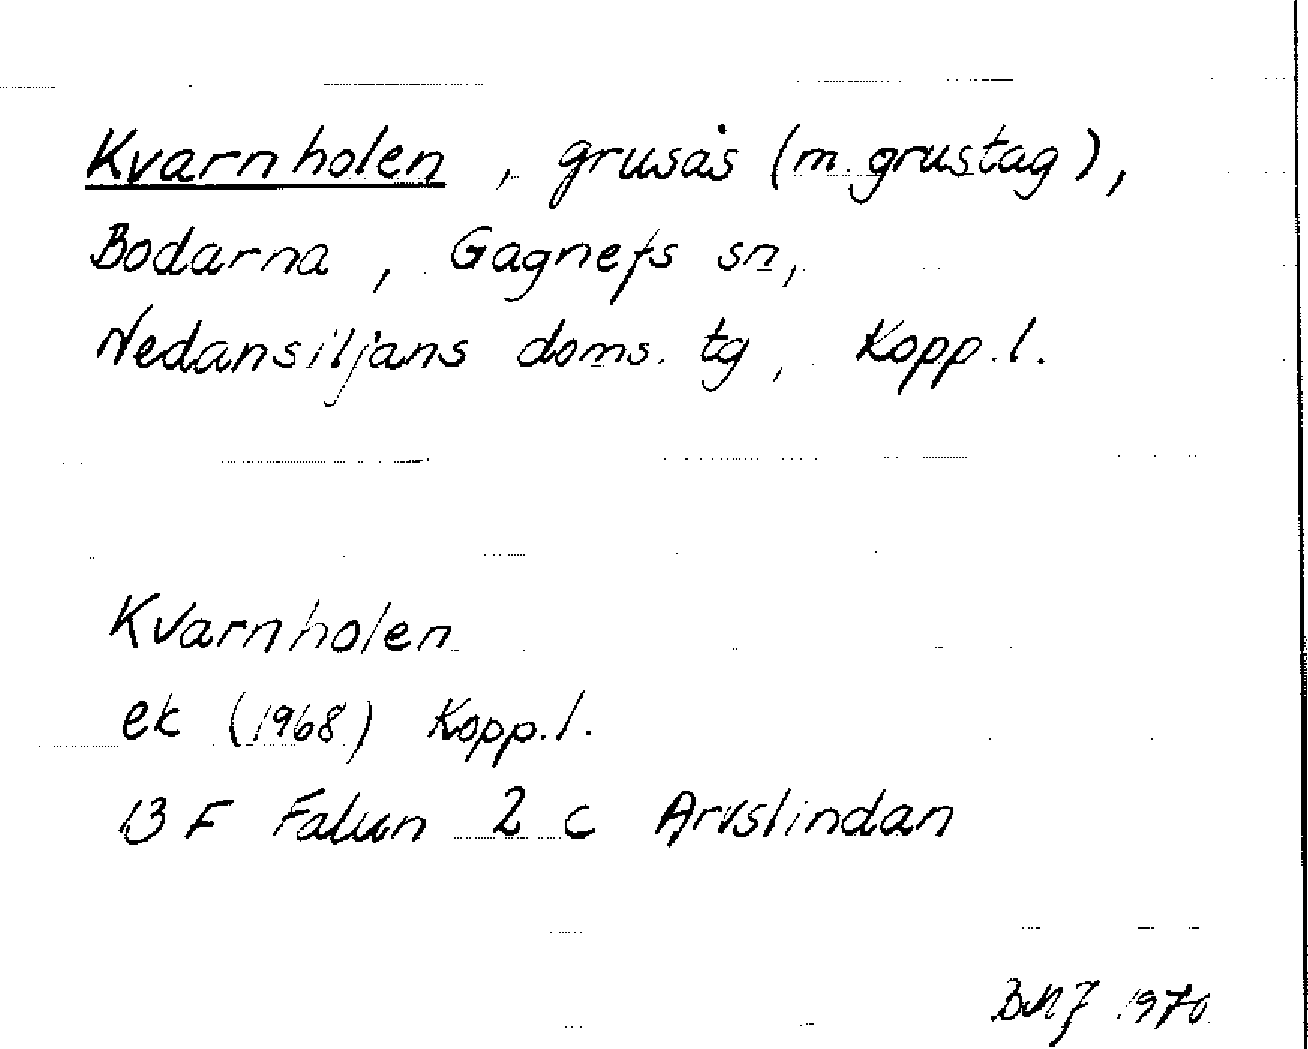 Kvarnholen, grusås (m. grustag),
Bodarna, Gagnefs sn,
Nedansiljans doms. tg, Kopp. l.
Kvarnholen
ek (1968) Kopp. l.
13 F Falun 2 c Arvslindan
BMJ 1970